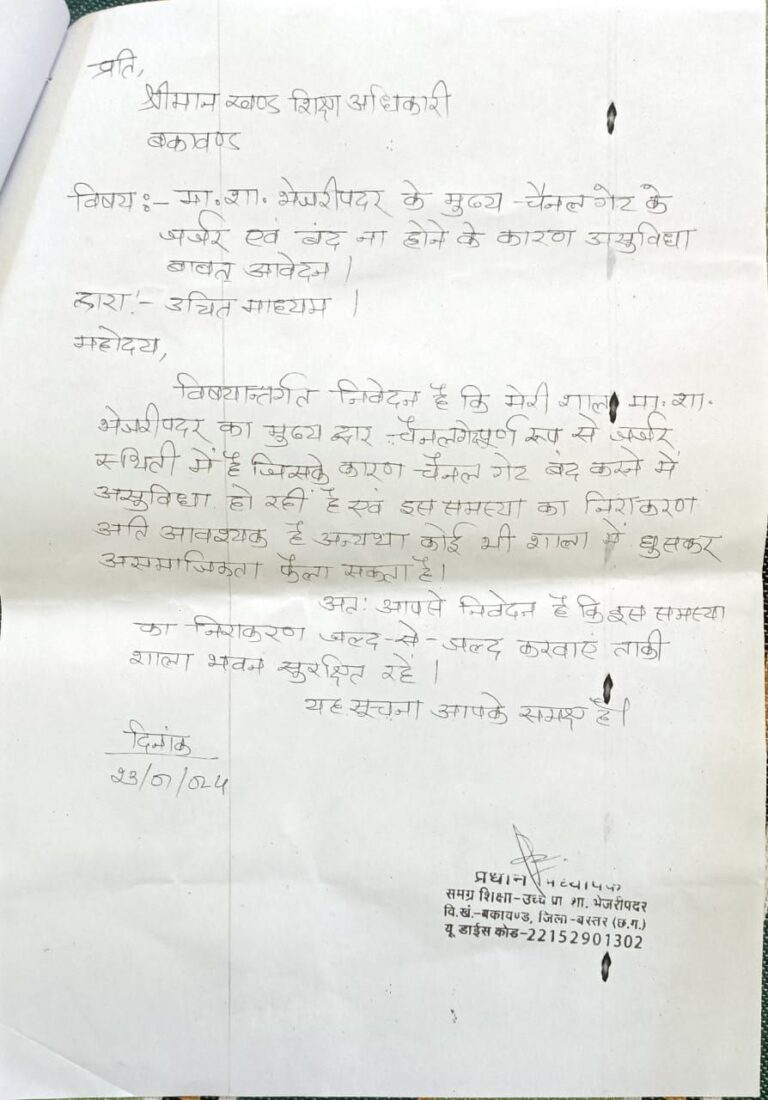 प्रति,
श्रीमान खण्ड शिक्षा अधिकारी
बकावण्ड
विषय :- मा. शा. भेजरीपदर के मुख्य चैनल गेट के
जर्जर एवं बंद ना होने के कारण असुविधा
बाबत् आवेदन ।
द्वारा :- उचित माध्यम ।
महोदय,
विषयान्तर्गत निवेदन है कि मेरी शाला मा. शा.
भेजरीपदर का मुख्य द्वार चैनलगेट पूर्ण रूप से जर्जर
स्थिती में है जिसके कारण चैनल गेट बंद करने में
असुविधा हो रहीं है एवं इस समस्या का निराकरण
अति आवश्यक है अन्यथा कोई भी शाला में घुसकर
असमाजिकता फैला सकता है।
अतः आपसे निवेदन है कि इस समस्या
का निराकरण जल्द-से-जल्द करवाएं ताकी
शाला भवन सुरक्षित रहें ।
यह सूचना आपके समक्ष है।
दिनांक
प्रधान अध्यापक
समग्र शिक्षा-उच्च प्रा शा. भेजरीपदर
वि.खं.-बकावण्ड, जिला-बस्तर (छ.ग.)
यू डाईस कोड-22152901302